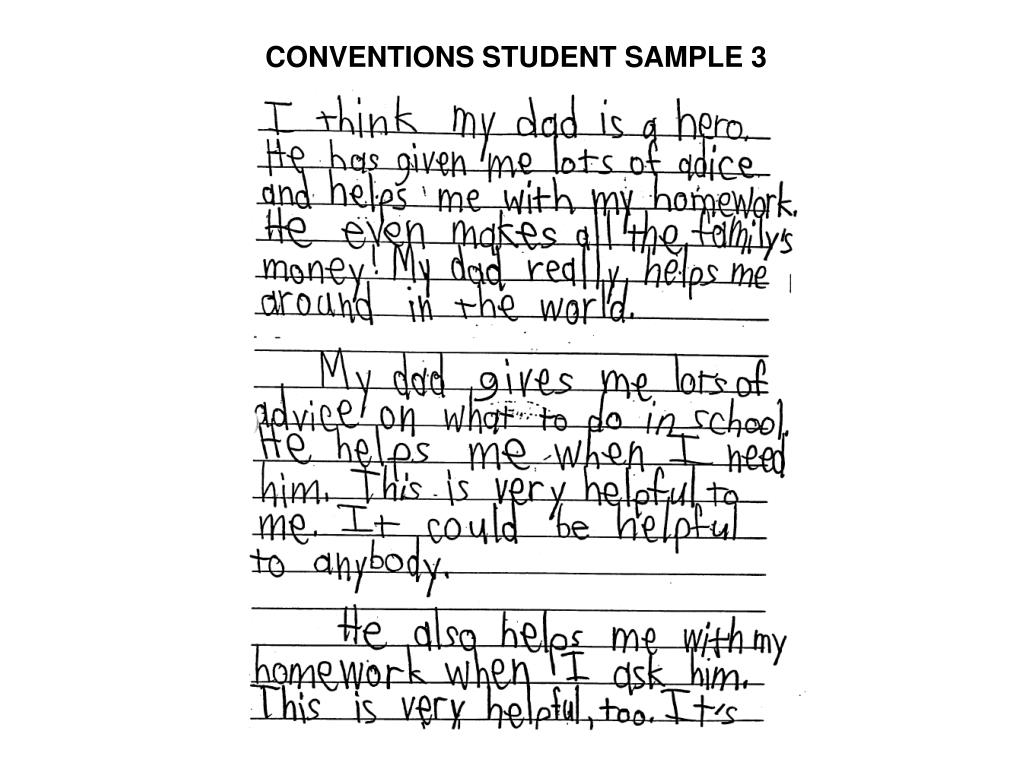 CONVENTIONS STUDENT SAMPLE 3
I think my dad is a hero.
He has given me lots of adice
and helps me with my homework.
He even makes all the family's
money! My dad really helps me
around in the world.
My dad gives me lots of
advice on what to do in school.
He helps me when I need
him. This is very helpful to
me. It could be helpful
to anybody.
He also helps me with my
homework when I ask him.
This is very helpful, too. It's